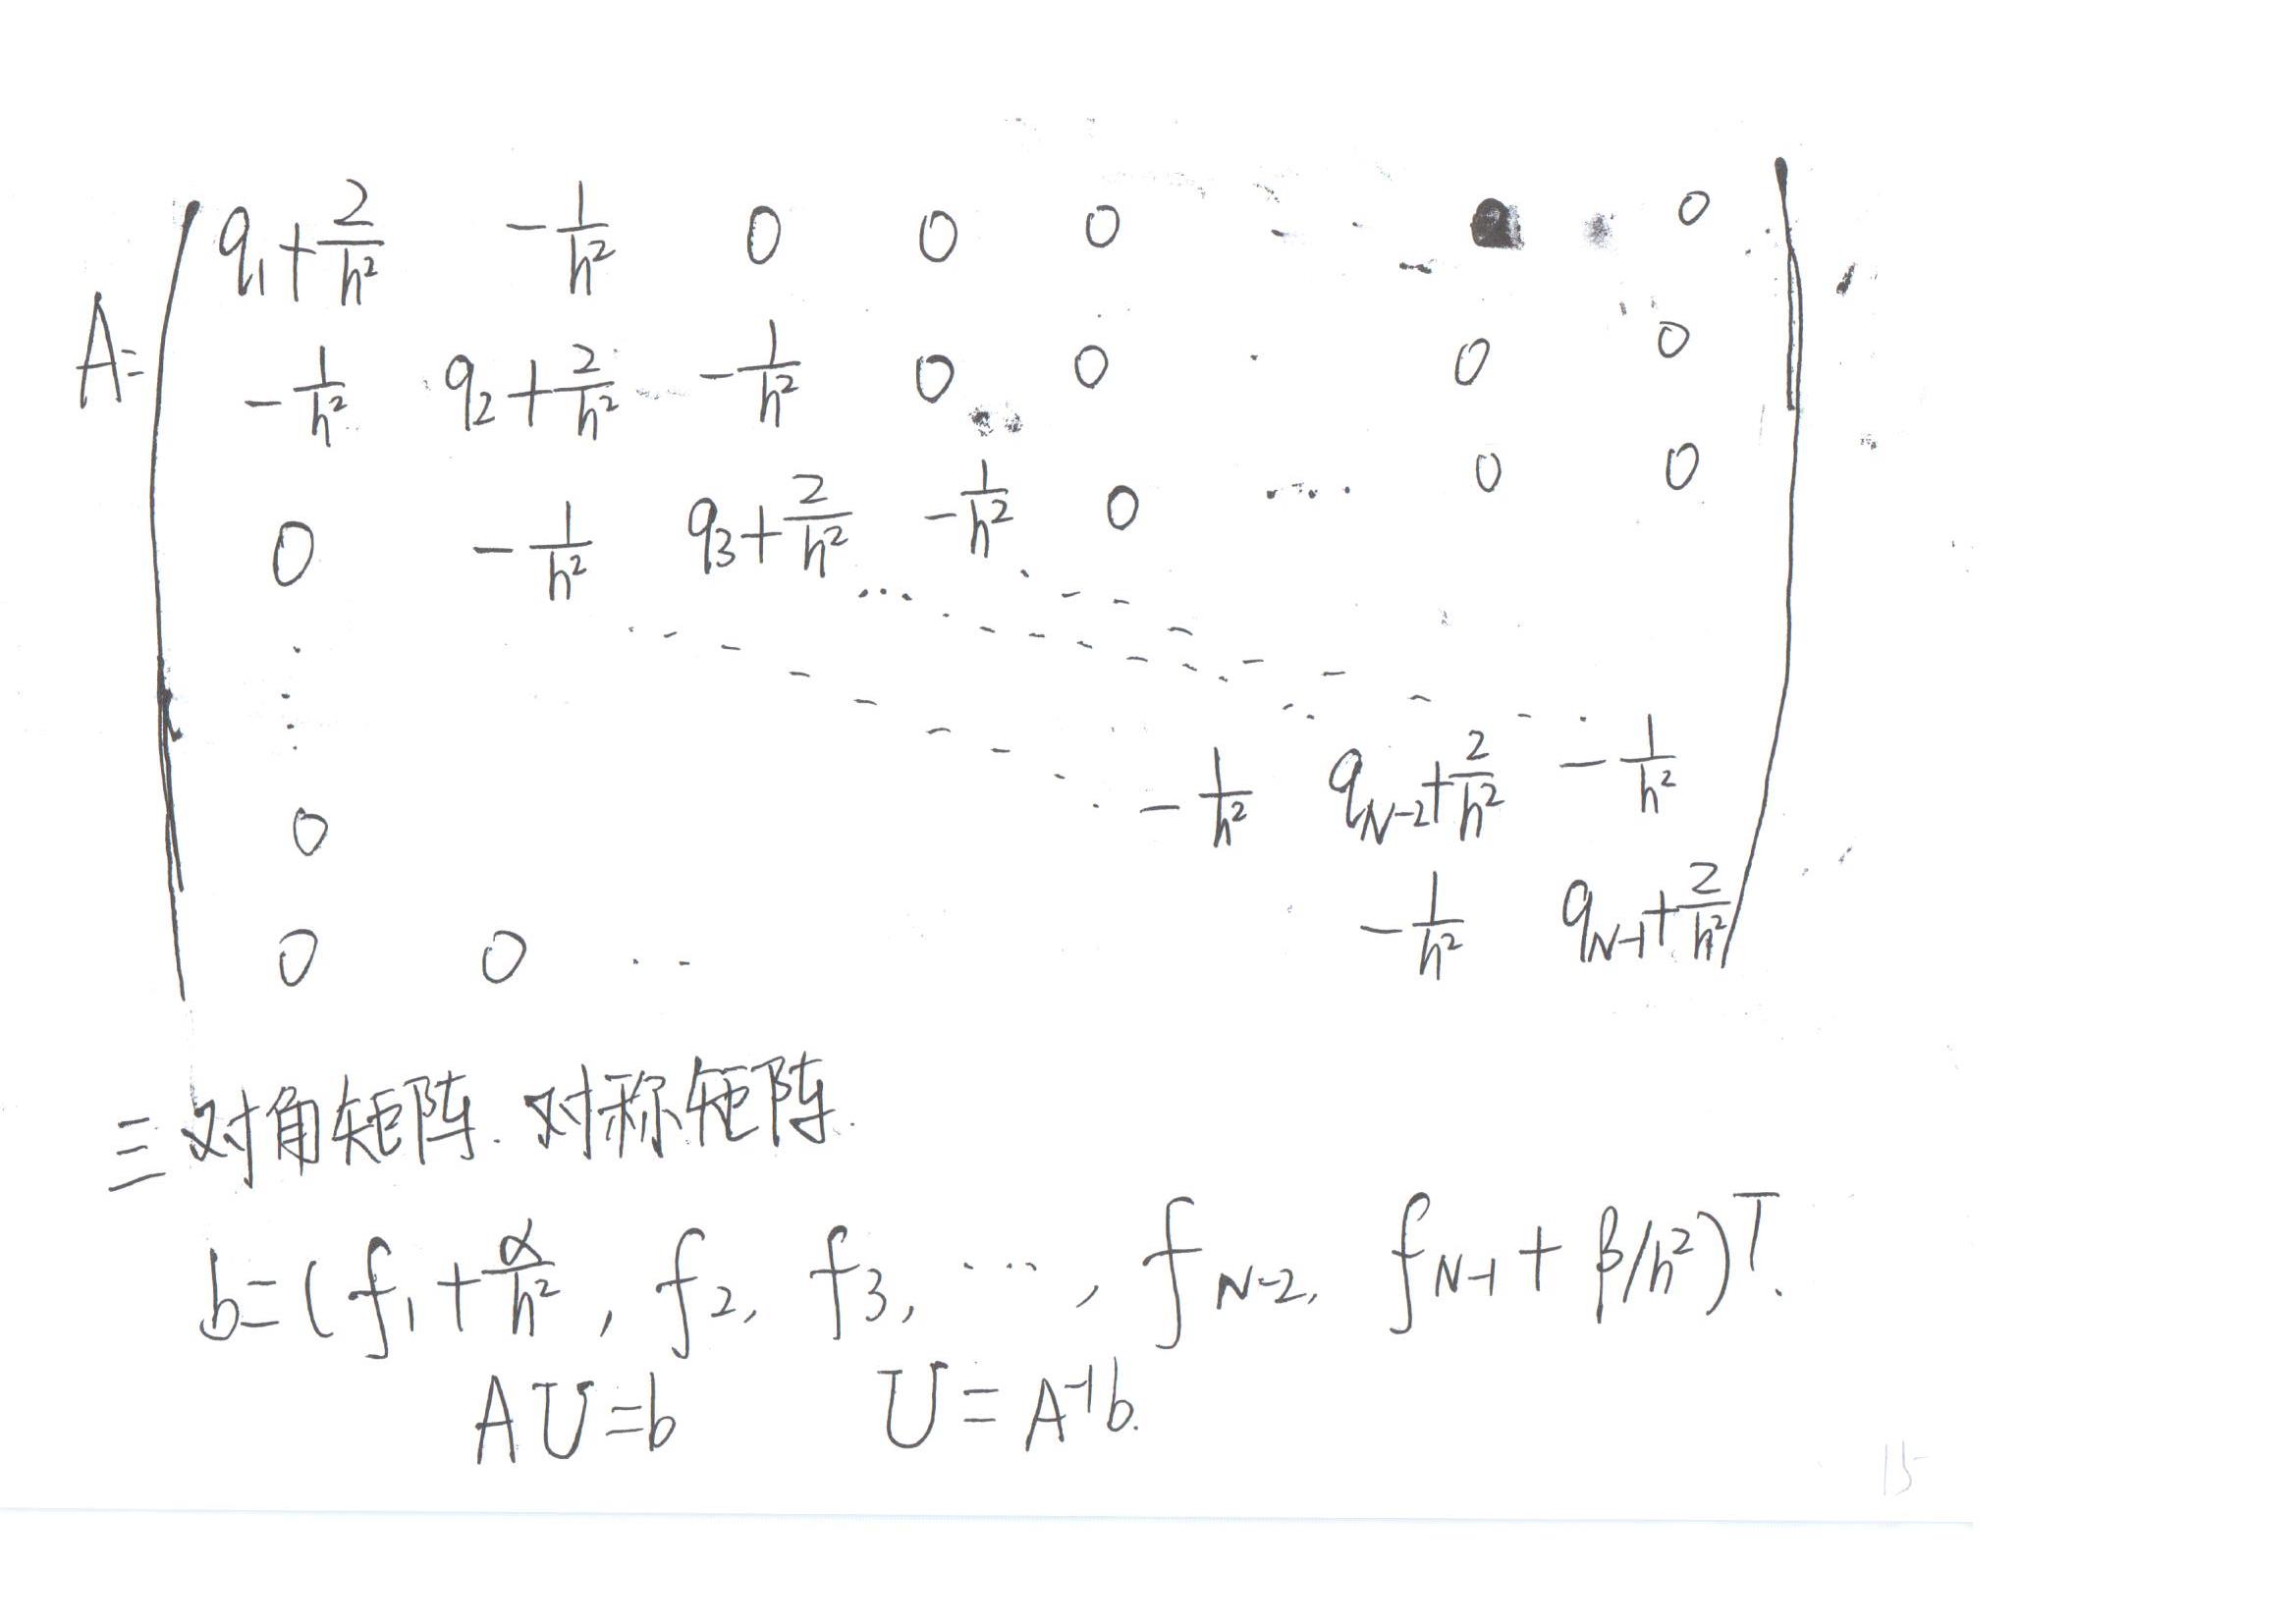 A=
q₁+2/h² -1/h² 0 0 0 - - - 0
-1/h² q₂+2/h² -1/h² 0 0 · 0 0
0 -1/h² q₃+2/h² -1/h² 0 .... 0 0
0 -1/h² q_{N-2}+2/h² -1/h²
0 0 .. -1/h² q_{N-1}+2/h²
三对角矩阵. 对称矩阵.
b=(f₁+α/h², f₂, f₃, ..., f_{N-2}, f_{N-1}+β/h²)ᵀ.
AU=b U=A⁻¹b.
15